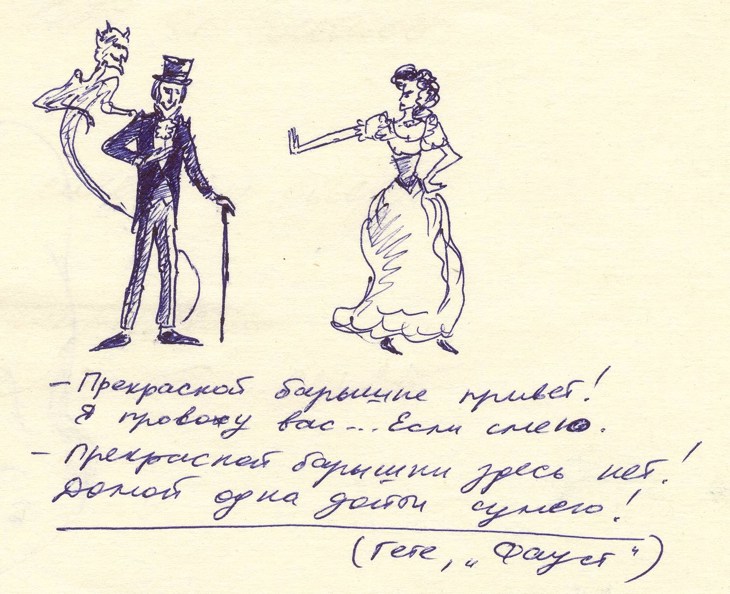 — Прекрасной барышне привет!
Я провожу вас... Если смею.
— Прекрасной барышни здесь нет!
Домой одна дойти сумею!
(Гете, „Фауст“)